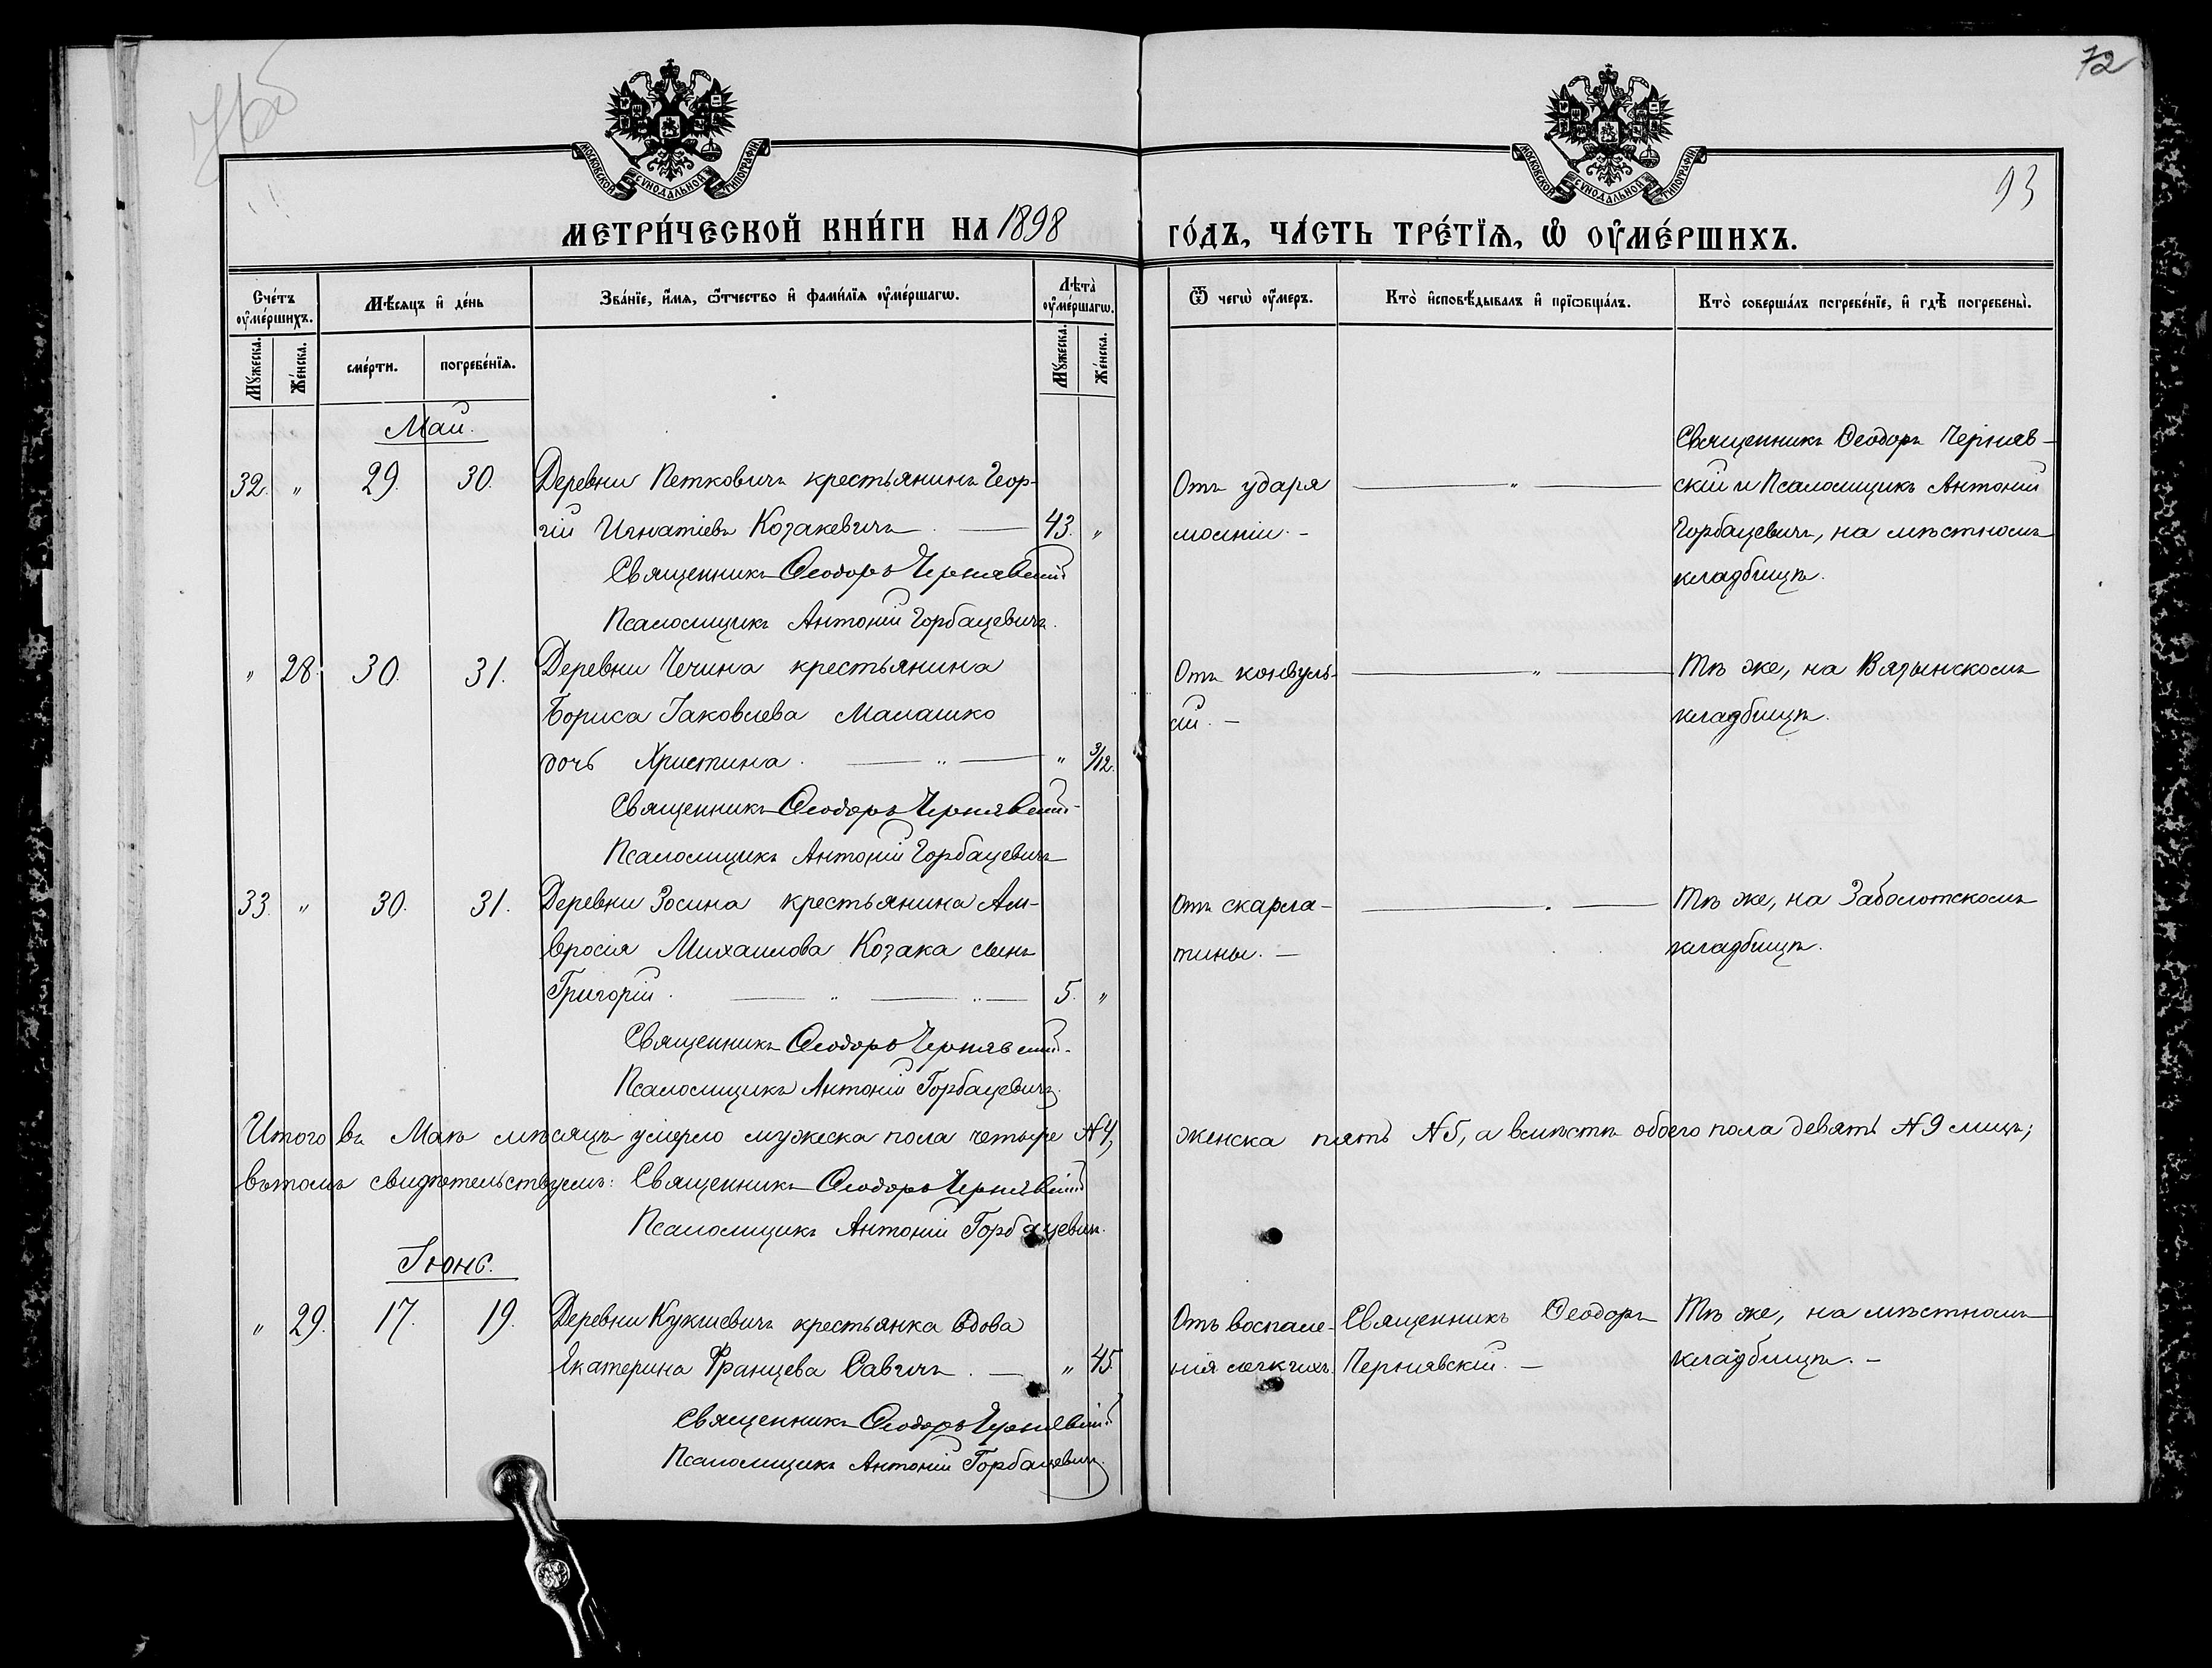 72
93
МОСКОВСКОЙ СѴНОДАЛЬНОЙ ТИПОГРАФІИ
МОСКОВСКОЙ СѴНОДАЛЬНОЙ ТИПОГРАФІИ
МЕТРИ́ЧЕСКОЙ КНИ́ГИ НА 1898 ГО́ДЪ, ЧА́СТЬ ТРЕ́ТЇѦ, Ѡ ОУ҆МЕ́РШИХЪ.
Сче́тъ оу҆ме́ршихъ.
Мꙋ́жеска.
Же́нска.
Мѣ́сяцъ и҆ де́нь
сме́рти.
погребе́нїѧ.
Зва́нїе, и҆́мѧ, ѻ҆́тчество и҆ фами́лїѧ оу҆ме́ршагѡ.
Лѣ́та оу҆ме́ршагѡ.
Мꙋ́жеска.
Же́нска.
Ѿ чегѡ̀ оу҆́меръ.
Кто̀ и҆сповѣ́дывалъ и҆ прїѡбща́лъ.
Кто̀ соверша́лъ погребе́нїе, и҆ гдѣ̀ погребены̀.
Май.
32. " 29. 30. Деревни Петковичъ крестьянинъ Геор-
гій Игнатіевъ Козакевичъ. — 43. "
Священникъ Ѳеодоръ Чернявскій
Псаломщикъ Антоній Горбацевичъ.
Отъ ударя
молніи. —
— " —
Священникъ Ѳеодоръ Черняв-
скій и Псаломщикъ Антоній
Горбацевичъ, на мѣстномъ
кладбищѣ.
" 28. 30. 31. Деревни Чечина крестьянина
Бориса Іаковлева Малашко
дочь Христина. — " — " 3/12.
Священникъ Ѳеодоръ Чернявскій
Псаломщикъ Антоній Горбацевичъ
Отъ конвуль-
сій. —
— " —
Тѣ же, на Вязынскомъ
кладбищѣ.
33. " 30. 31. Деревни Зосина крестьянина Ам-
вросія Михаилова Козака сынъ
Григорій. — " — " — 5. "
Священникъ Ѳеодоръ Чернявскій.
Псаломщикъ Антоній Горбацевичъ.
Отъ скарла-
тины. —
— " —
Тѣ же, на Заболотскомъ
кладбищѣ.
Итого въ Маѣ мѣсяцѣ умерло мужеска пола четыре №4, женска пять №5, а вмѣстѣ обоего пола девять №9 лицъ;
въ томъ свидѣтельствуемъ: Священникъ Ѳеодоръ Чернявскій
Псаломщикъ Антоній Горбацевичъ.
Іюнь.
" 29. 17. 19. Деревни Кукшевичъ крестьянка вдова
Екатерина Францева Савичъ. — " 45
Священникъ Ѳеодоръ Чернявскій
Псаломщикъ Антоній Горбацевичъ.
Отъ воспале-
нія легкихъ.
Священникъ Ѳеодоръ
Чернявскій. —
Тѣ же, на мѣстномъ
кладбищѣ. —